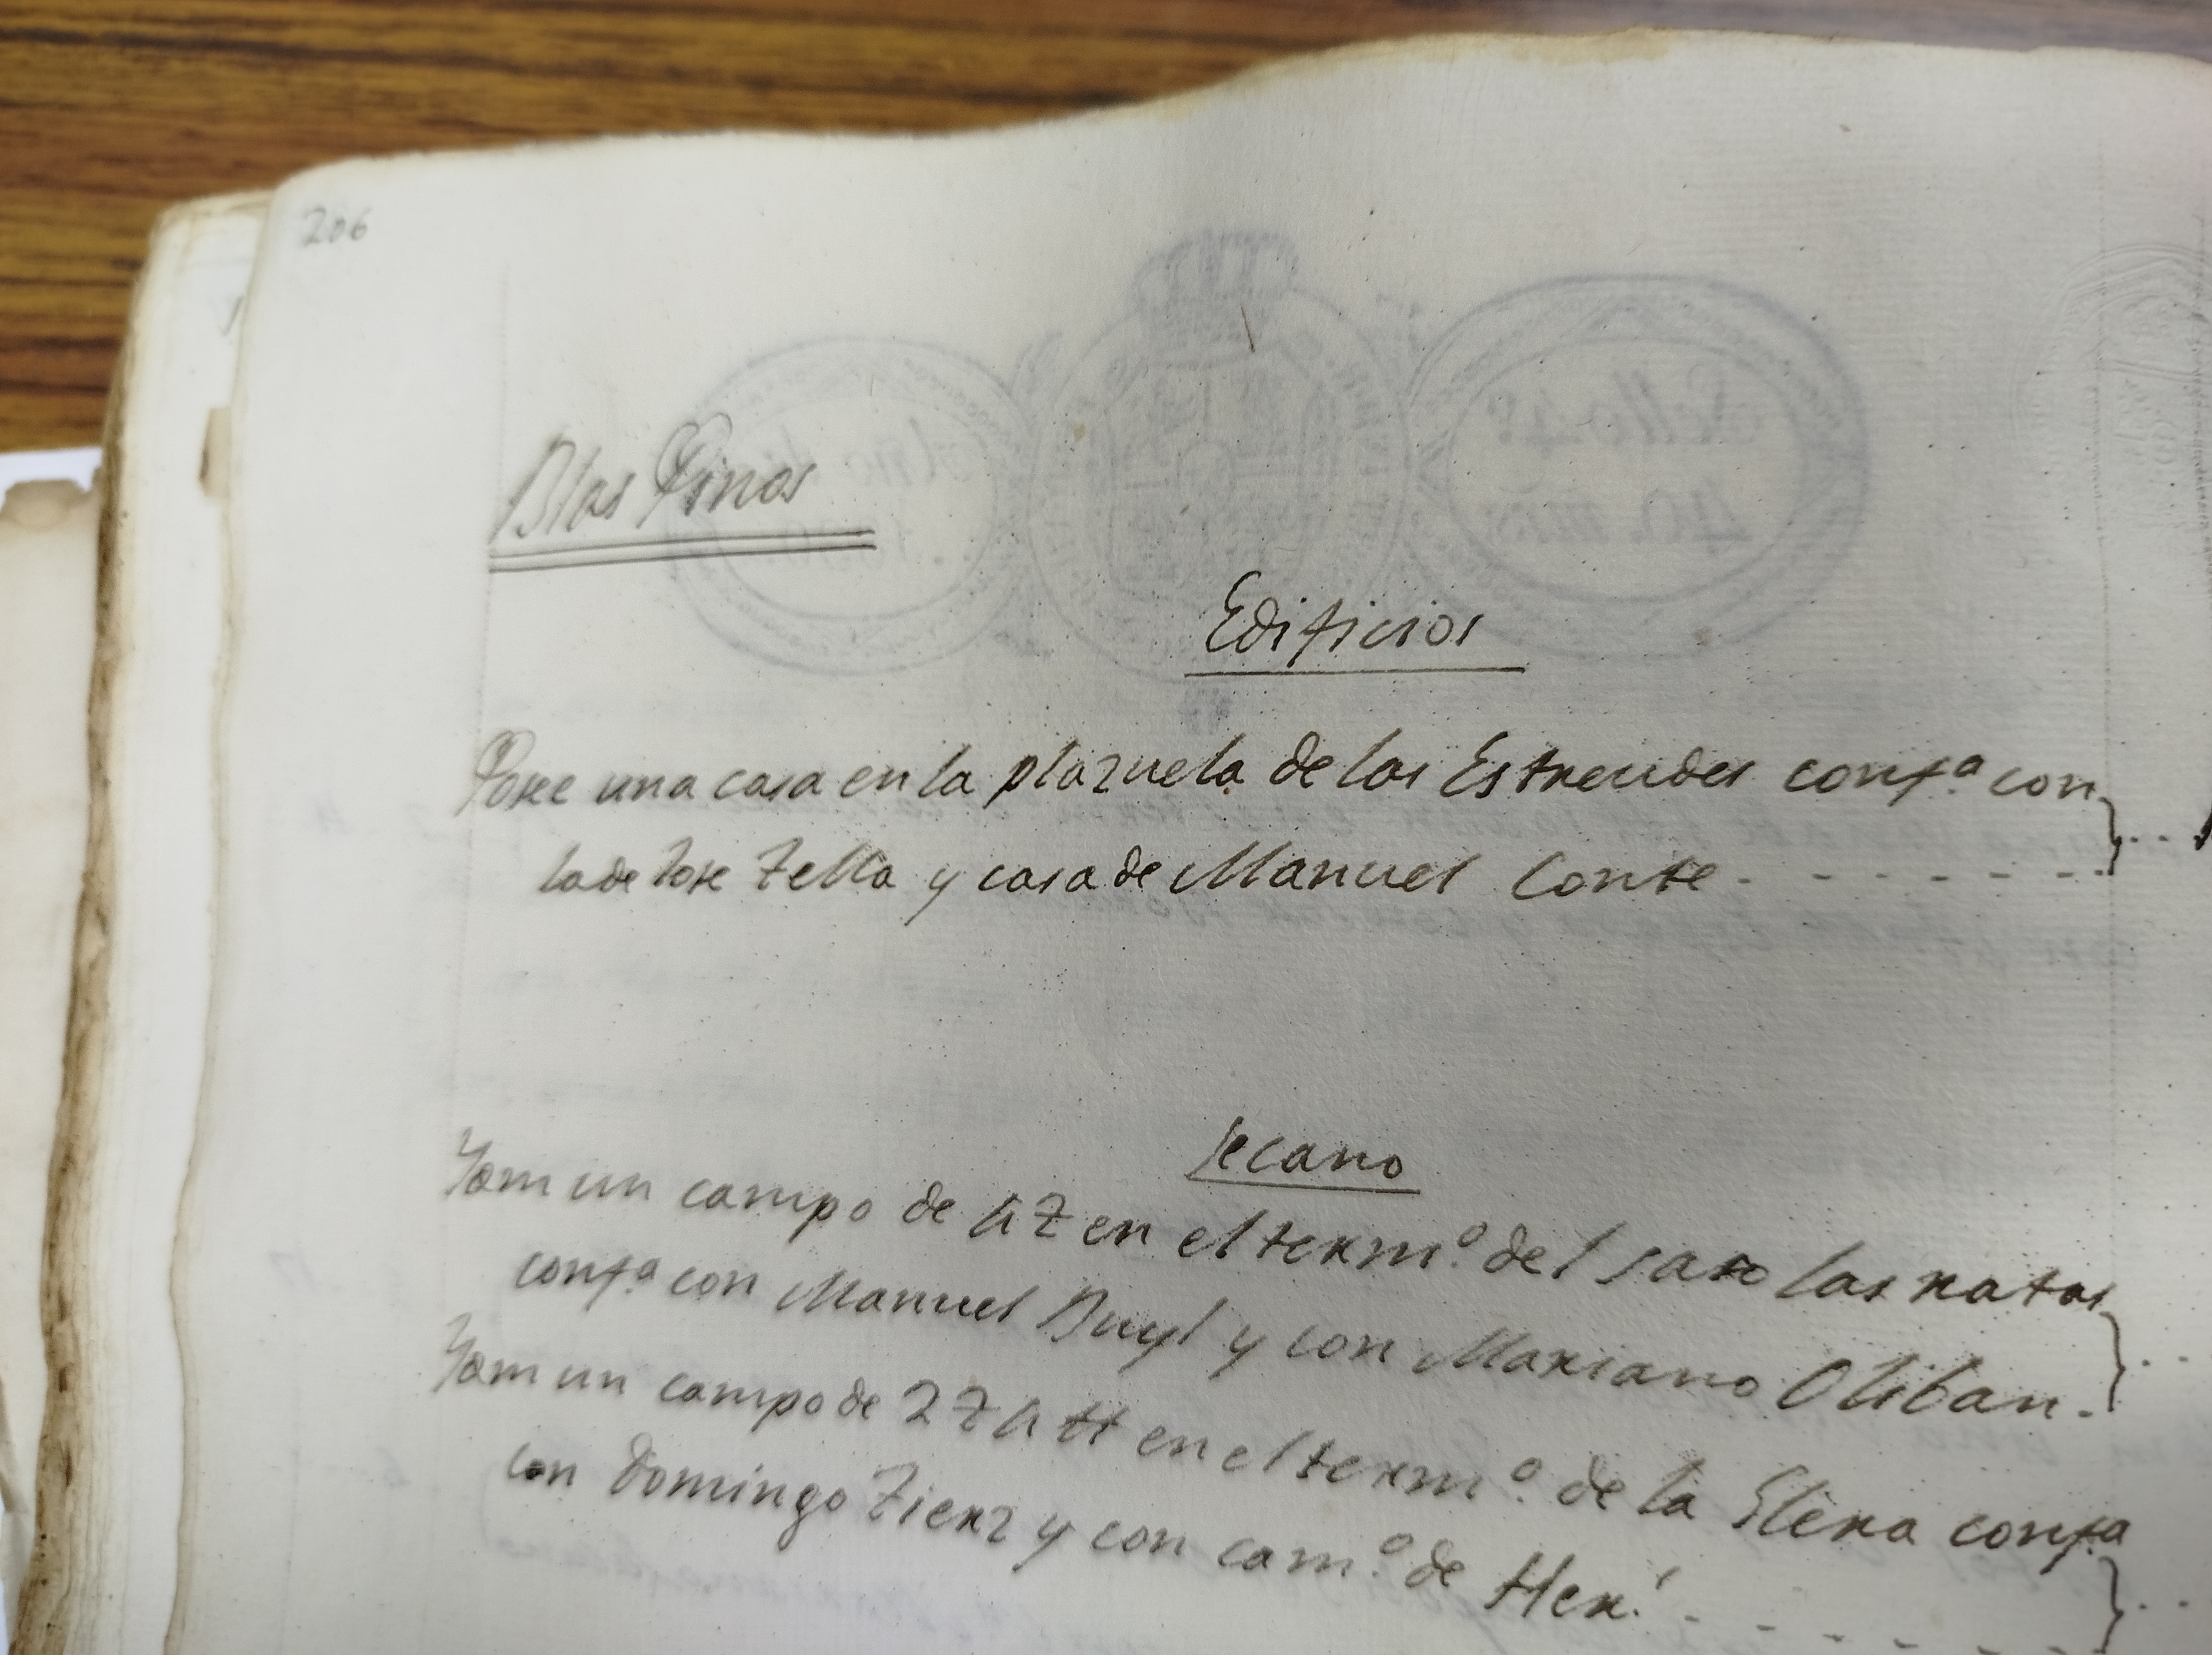 206
Blas Pinos
Edificios
Posee una casa en la plazuela de las Estreudes confª con
la de Jose Zella y casa de Manuel Conte
Secano
Yam un campo de 4 Z en el termº del saso las ratas
confª con Manuel Buyl y con Mariano Oliban
Yam un campo de 2 Z 4 H en el termº de la Elera confª
con Domingo Zierz y con camº de